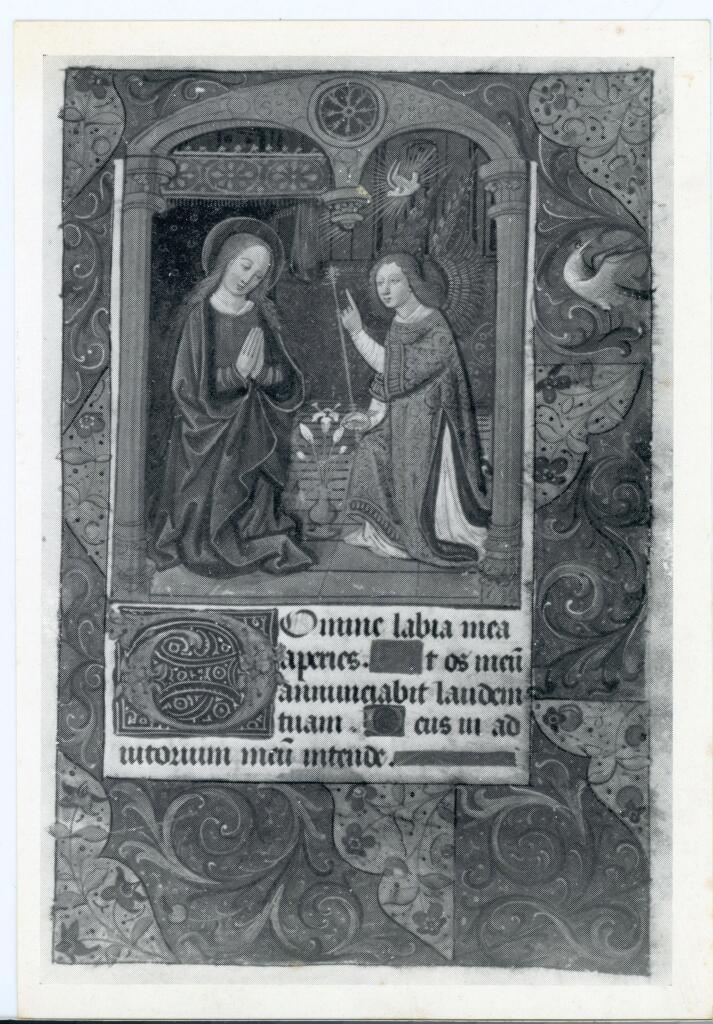 Domine labia mea
aperies. Et os meū
annunciabit laudem
tuam. Deus in ad
iutorium meū intende.